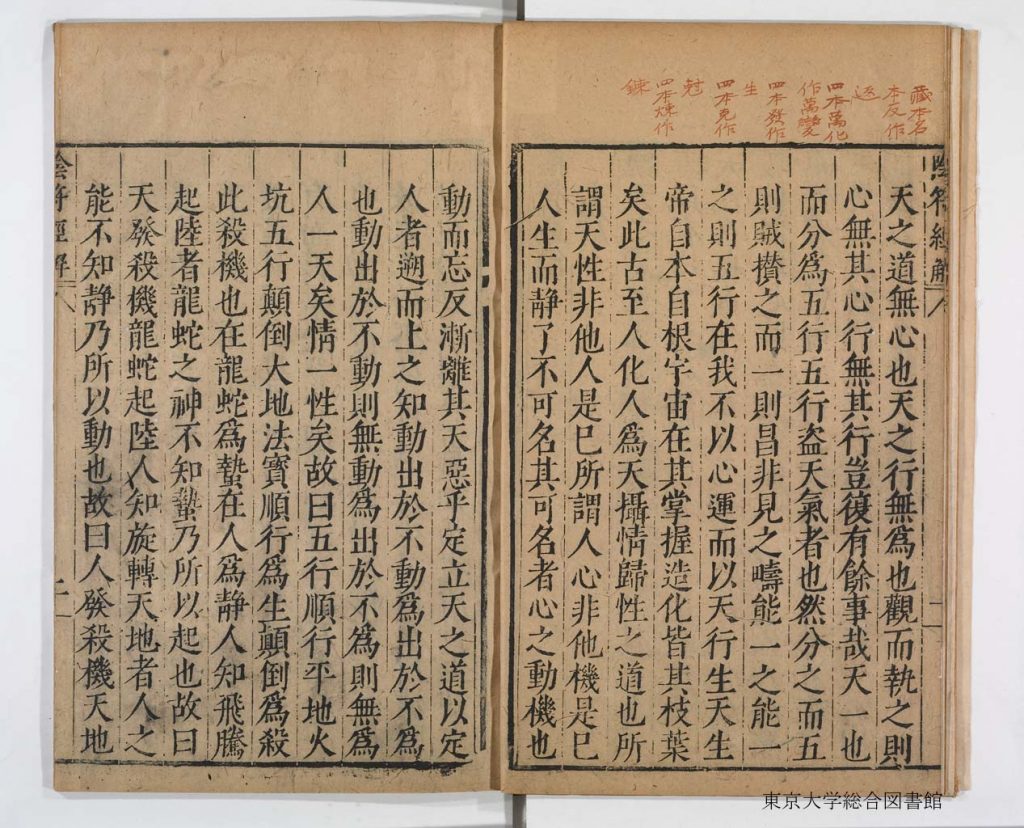 藏本名
本反作
返
四本萬化
作萬變
四本發作
生
四本克作
尅
四本煉作
鍊
陰符經解
二
天之道無心也天之行無爲也觀而執之則
心無其心行無其行豈復有餘事哉天一也
而分爲五行五行盗天氣者也然分之而五
則賊攅之而一則昌非見之疇能一之能一
之則五行在我不以心運而以天行生天生
帝自本自根宇宙在其掌握造化皆其枝葉
矣此古至人化人爲天攝情歸性之道也所
謂天性非他人是巳所謂人心非他機是巳
人生而静了不可名其可名者心之動機也
動而忘反漸離其天惡乎定立天之道以定
人者遡而上之知動出於不動爲出於不爲
也動出於不動則無動爲出於不爲則無爲
人一天矣情一性矣故曰五行順行平地火
坑五行顛倒大地法寶順行爲生顛倒爲殺
此殺機也在龍蛇爲蟄在人爲静人知飛騰
起陸者龍蛇之神不知蟄乃所以起也故曰
天發殺機龍蛇起陸人知旋轉天地者人之
能不知静乃所以動也故曰人發殺機天地
陰符經解
二
東京大学総合図書館